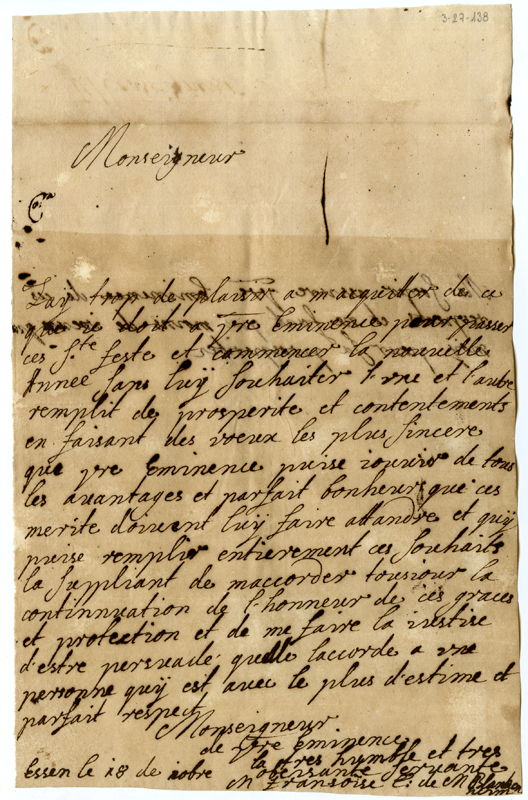 3-27-138
Monseigneur
J'ay trop de plaisir a m'aquitter de ce
que je doit a vre Eminence pour passer
ces Ste feste et commencer la nouvelle
Année sans luÿ souhaiter l'vne et l'autre
remplit de prosperite et contentements
en faisant des voeux les plus sincere
que vre Eminence puise iouuir de tous
les auantages et parfait bonheur que ces
merite doiuent luÿ faire attandre et quÿ
puise remplir entierement ces souhaits
la suppliant de maccorder tousiour la
continnuation de l'honneur de ces graces
et protection et de me faire la iustise
d'estre persuadé quelle laccorde a vne
personne quÿ est avec le plus d'estime et
parfait respect
Monseigneur
de vre eminence
la tres humble et tres
obeissante servante
Essen le 18 de xobre
M Françoise C: de M